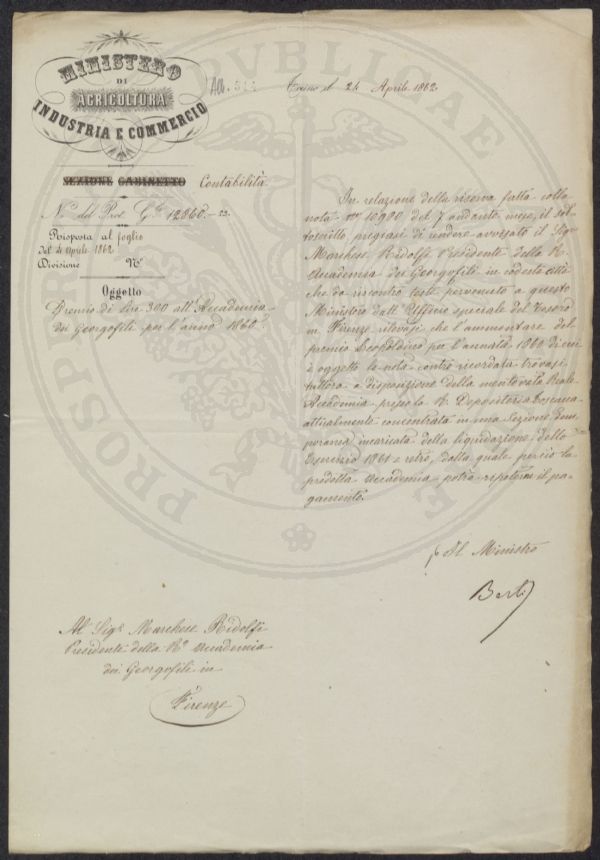 MINISTERO
DI
AGRICOLTURA
INDUSTRIA E COMMERCIO
Torino il 24 Aprile 1862
SEZIONE GABINETTO Contabilità
N.° del Prot. G.le 12860.
Risposta al foglio
del 4 Aprile 1862
Divisione N.°
Oggetto
Premio di Lire 300 all'Accademia
dei Georgofili per l'anno 1860.
In relazione della riserva fatta colla
nota N.° 10990 del 7 andante mese, il sot-
toscritto pregiasi di rendere avvisato il Sig.r
Marchese Ridolfi Presidente della R.
Accademia dei Georgofili in codesta città
che da riscontro testè pervenuto a questo
Ministero dall'Uffizio speciale del Tesoro
in Firenze rilevasi che l'ammontare del
premio Leopoldino per l'annata 1860 di cui
è oggetto la nota contro ricordata trovasi
tuttora a disposizione della mentovata Reale
Accademia presso la R. Depositeria Toscana
attualmente concentrata in una Sezione Tem-
poranea incaricata della liquidazione dello
Esercizio 1861 e retro, dalla quale perciò la
predetta Accademia potrà ripeterne il pa-
gamento.
p. Il Ministro
Berti
Al Sig.r Marchese Ridolfi
Presidente della R.a Accademia
dei Georgofili in
Firenze
PROSPERITATI
PVBLICAE